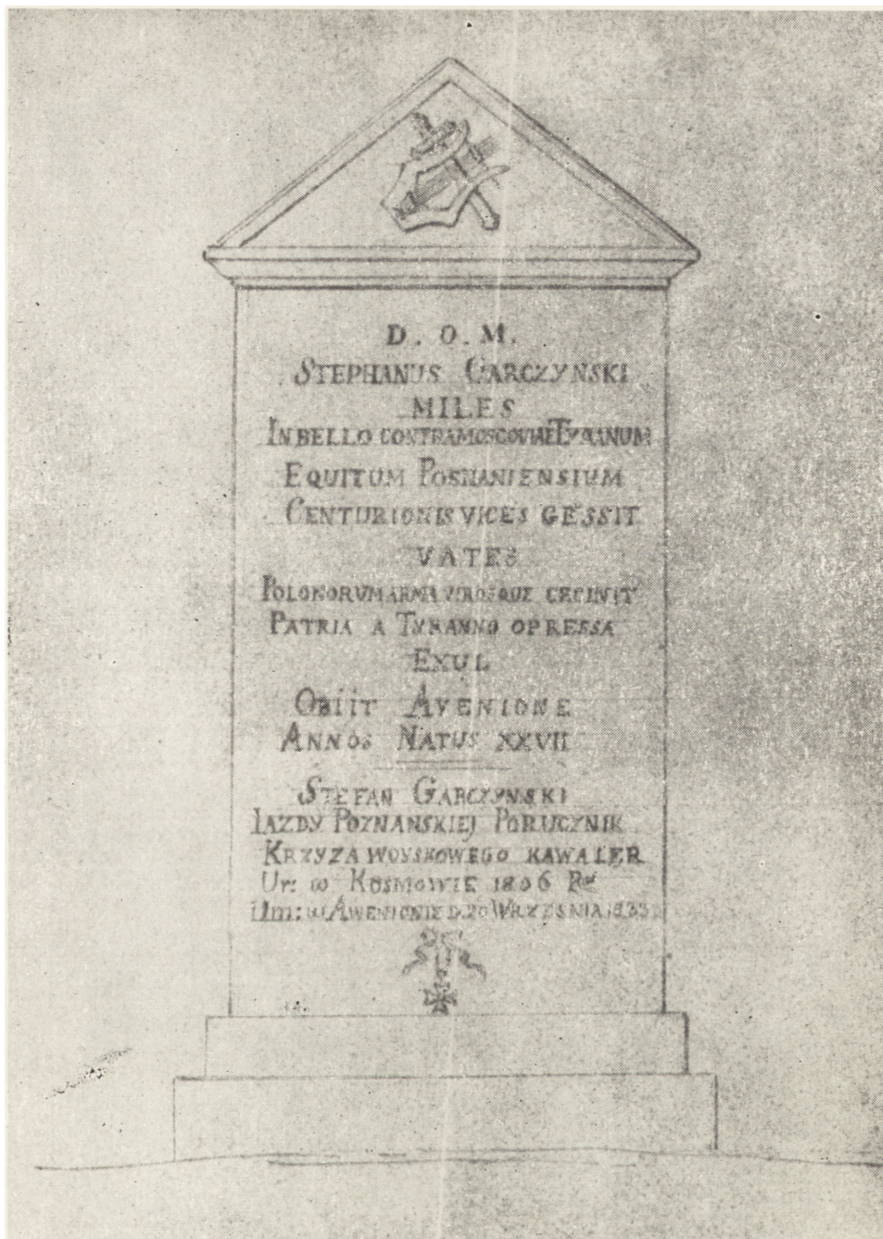 D. O. M.
STEPHANUS GARCZYNSKI
MILES
IN BELLO CONTRA MOSCOVIAE TYRANUM
EQUITUM POSNANIENSIUM
CENTURIONIS VICES GESSIT
VATES
POLONORUM ARMA VIROSQUE CECINIT
PATRIA A TYRANNO OPRESSA
EXUL
OBIIT AVENIONE
ANNOS NATUS XXVII
STEFAN GARCZYNSKI
IAZDY POZNANSKIEJ PORUCZNIK
KRZYZA WOYSKOWEGO KAWALER
Ur: w KOSMOWIE 1806 Ru
Um: w AWENIONIE D. 20 WRZESNIA 1833